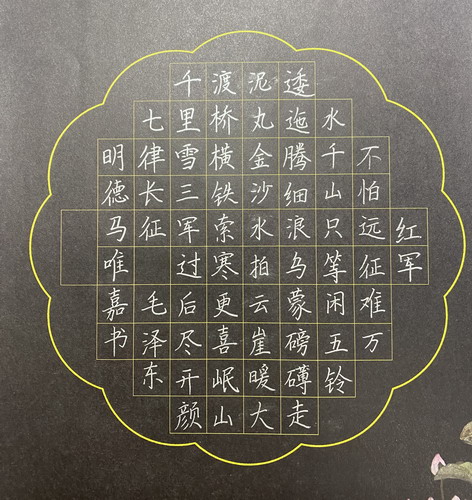 红军
不怕远征难万
水千山只等闲五铃
逶迤腾细浪乌蒙磅礴走
泥丸金沙水拍云崖暖大
渡桥横铁索寒更喜岷山
千里雪三军过后尽开颜
七律长征 毛泽东
明德马唯嘉书